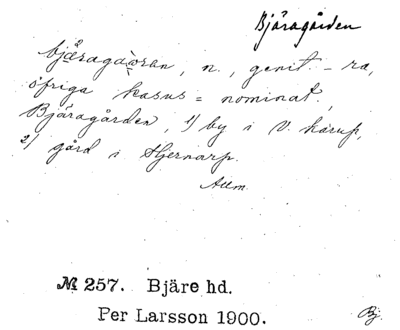 Bjäragården
bjäragåran, n., genit - ra,
öfriga kasus = nominat.
Bjäragården, 1) by i V. Karup,
2) gård i Hjernarp.
Allm.
№ 257. Bjäre hd.
Per Larsson 1900.
Bj.